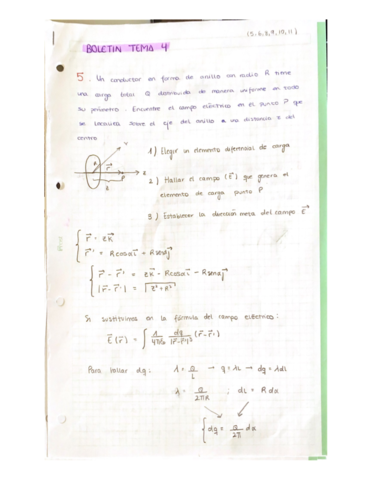 (5,6,8,9,10,11)
BOLETIN TEMA 4
5. Un conductor en forma de anillo con radio R tiene
una carga total Q distribuida de manera uniforme en todo
su perímetro. Encuentre el campo eléctrico en el punto P que
se localiza sobre el eje del anillo a una distancia z del
centro.
1) Elegir un elemento diferencial de carga
2) Hallar el campo (E⃗) que genera el
elemento de carga punto P
3) Establecer la dirección neta del campo E⃗
r⃗ = zk⃗
r⃗' = Rcosα i⃗ + Rsenα j⃗
r⃗ - r⃗' = zk⃗ - Rcosα i⃗ - Rsenα j⃗
|r⃗ - r⃗'| = √(z² + R²)
Si sustituimos en la fórmula del campo eléctrico:
E⃗(r⃗) = ∫ 1/4πε₀ dq/|r⃗-r⃗'|³ (r⃗-r⃗')
Para hallar dq: λ = Q/L → q = λL → dq = λdL
λ = Q/2πR ; dL = R dα
dq = Q/2π dα